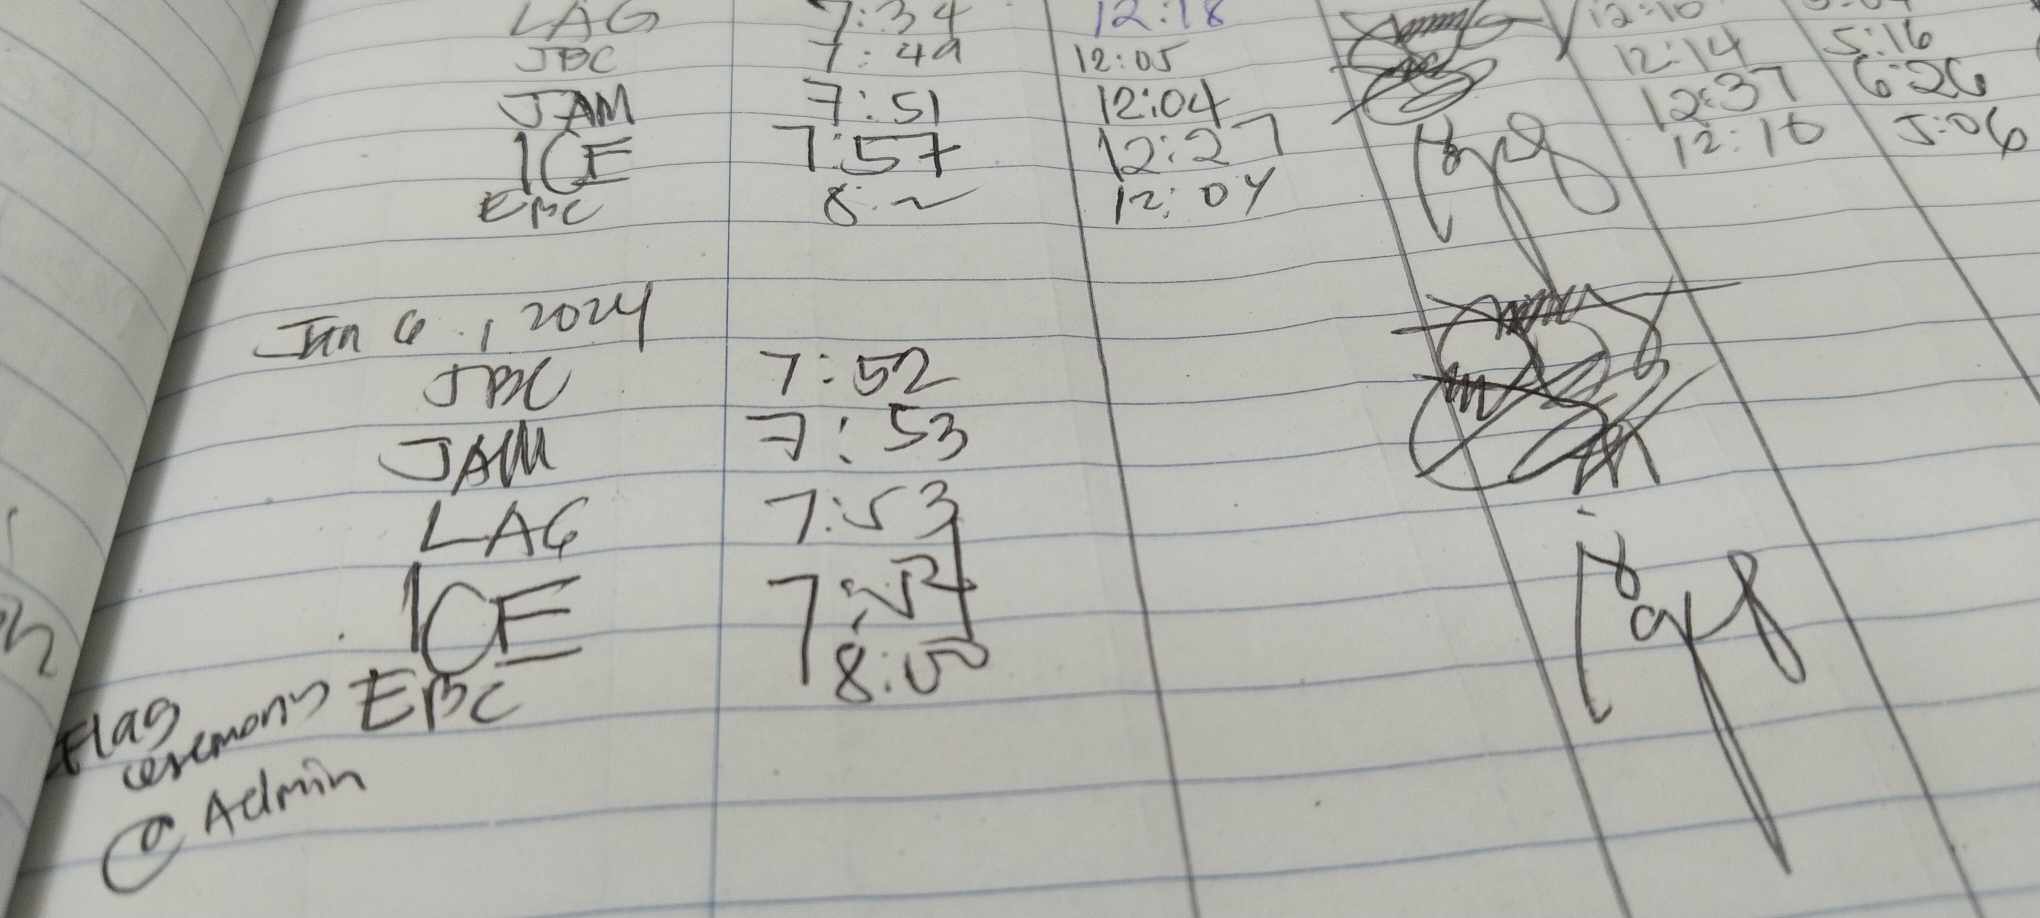 LAG 7:34 12:18 12:10
JBC 7:49 12:05 12:14 5:16
JAM 7:51 12:04 12:37 6:26
ICE 7:57 12:27 12:10 5:06
EBC 8: 12:04
Jan 6, 2024
JBC 7:52
JAM 7:53
LAG 7:53
ICE
EBC 8:00
Flag
ceremony
@ Admin